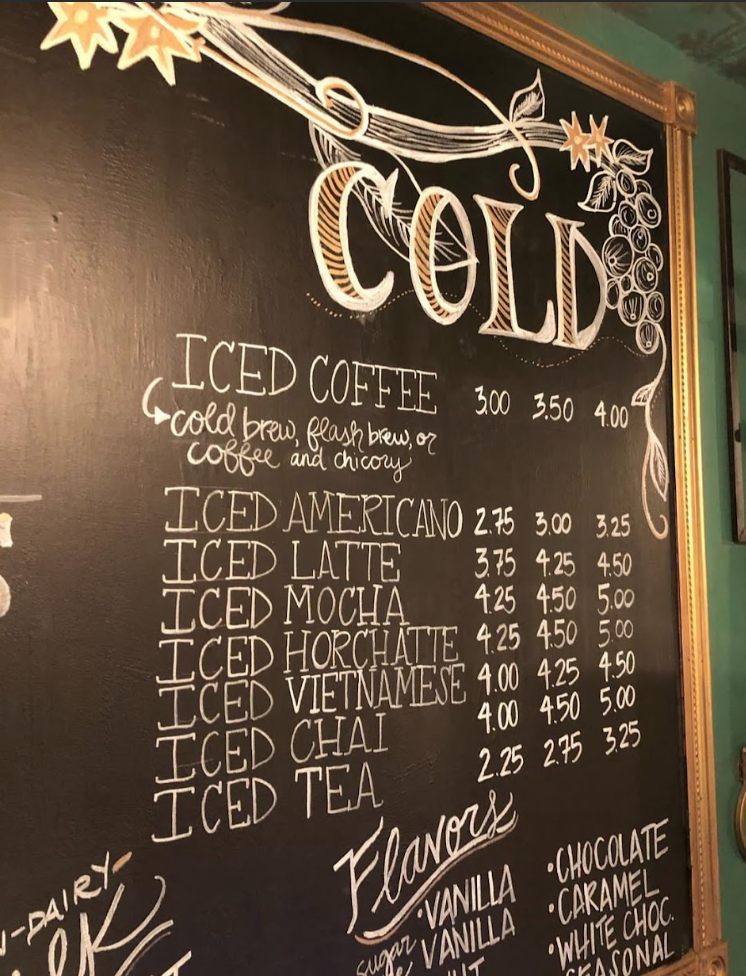 COLD
ICED COFFEE 3.00 3.50 4.00
cold brew, flash brew, or
coffee and chicory
ICED AMERICANO 2.75 3.00 3.25
ICED LATTE 3.75 4.25 4.50
ICED MOCHA 4.25 4.50 5.00
ICED HORCHATTE 4.25 4.50 5.00
ICED VIETNAMESE 4.00 4.25 4.50
ICED CHAI 4.00 4.50 5.00
ICED TEA 2.25 2.75 3.25
Flavors
•VANILLA
sugar VANILLA
•CHOCOLATE
•CARAMEL
•WHITE CHOC.
-DAIRY-